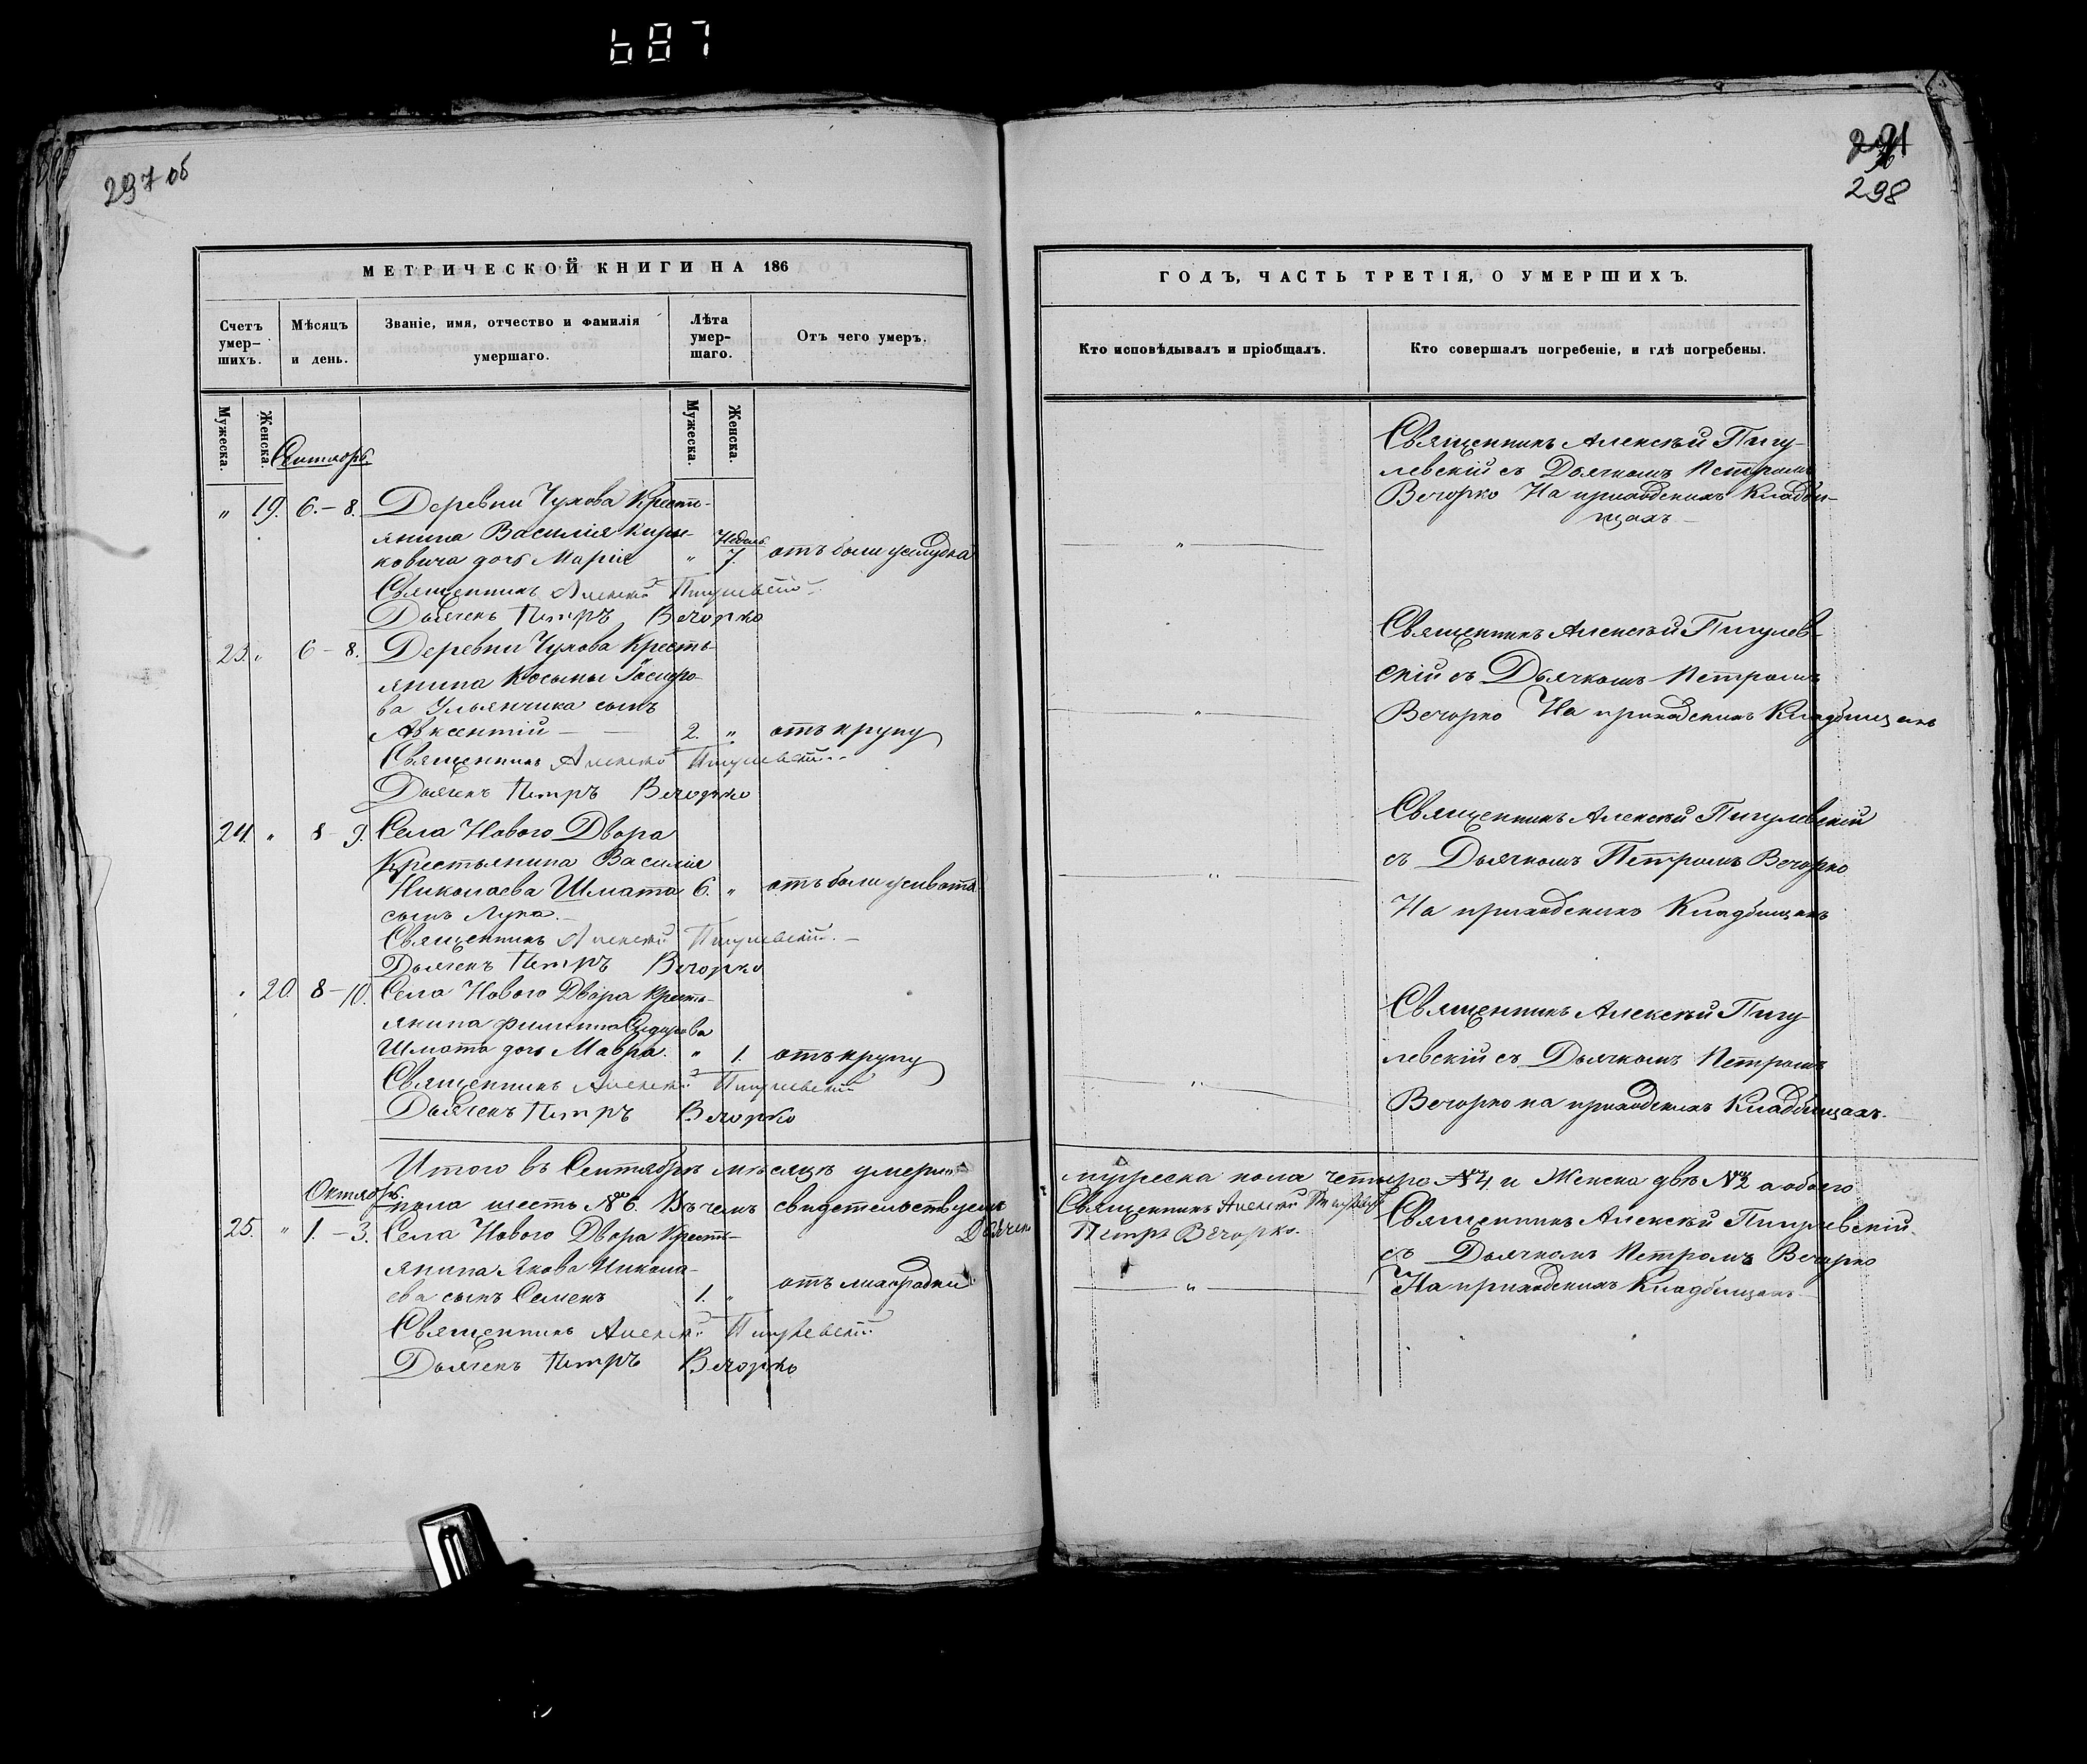 687
297 об
291
298
МЕТРИЧЕСКОЙ КНИГИ НА 186
Счетъ умер-шихъ.
Мѣсяцъ и день.
Званіе, имя, отчество и фамилія умершаго.
Лѣта умер-шаго.
Отъ чего умеръ.
Мужеска.
Женска.
Мужеска.
Женска.
Сентябрь.
" 19. 6.-8. Деревни Чухова Крест-
янина Василія
ковича дочь Марія " Недѣль 7. отъ боли желудка
Священникъ Алексѣй Пигулевскій
Дьячекъ Петръ Вечорко
23. " 6-8. Деревни Чухова Кресть-
янина Косьмы
ва Ульянчика сынъ
Авксентій — 2. " отъ крупу
Священникъ Алексѣй Пигулевскій
Дьячекъ Петръ Вечорко
24. " 8-9. Села Нового Двора
Крестьянина Василія
Николаева Шмата 6. " отъ боли живота
сынъ Лука.
Священникъ Алексѣй Пигулевскій.
Дьячекъ Петръ Вечорко
" 20. 8-10. Села Нового Двора Кресть-
янина Филиппа
Шмата дочь Мавра. " 1. отъ крупу
Священникъ Алексѣй Пигулевскій
Дьячекъ Петръ Вечорко
Итого въ Сентябрѣ мѣсяцѣ умерло
Октябрь.
пола шесть №6. Въ чемъ свидетельствуемъ
25. " 1.-3. Села Нового Двора Кресть-
Дьячекъ
янина Якова Никола-
ева сынъ Семенъ 1. " отъ лихорадки
Священникъ Алексѣй Пигулевскій
Дьячекъ Петръ Вечорко
ГОДЪ, ЧАСТЬ ТРЕТІЯ, О УМЕРШИХЪ.
Кто исповѣдывалъ и пріобщалъ.
Кто совершалъ погребеніе, и гдѣ погребены.
Священникъ Алексѣй Пигу-
левскій съ Дьячкомъ Петромъ
Вечорко На приходскихъ Кладби-
щахъ
"
Священникъ Алексѣй Пигулев-
скій съ Дьячкомъ Петромъ
" Вечорко На приходскихъ Кладбищахъ
Священникъ Алексѣй Пигулевскій
съ Дьячкомъ Петромъ Вечорко
"
На приходскихъ Кладбищахъ
Священникъ Алексѣй Пигу
левскій съ Дьячкомъ Петромъ
"
Вечорко на приходскихъ Кладбищахъ.
мужеска пола четыре №4. и Женска двѣ №2 а обоего
Священникъ Алексѣй Пигулевскій
Петръ Вечорко.
Священникъ Алексѣй Пигулевскій.
съ Дьячкомъ Петромъ Вечорко
" На приходскихъ Кладбищахъ